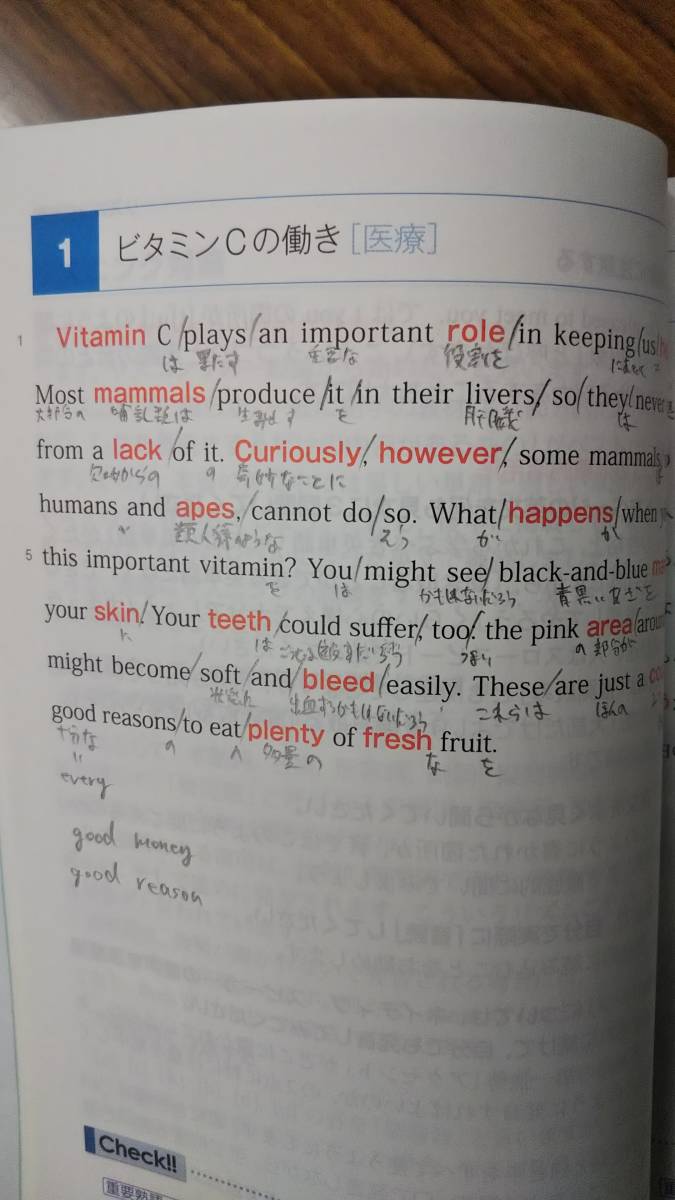 1
ビタミンCの働き [医療]
1 Vitamin C/plays/an important role/in keeping/us/
は 果たす 重要な 役割を
Most mammals/produce/it/in their livers,/so/they/never
大部分の 哺乳類は 生み出す を 肝臓 は
from a lack/of it. Curiously,/however,/some mammals,
欠如からの の 奇妙なことに
humans and apes,/cannot do/so. What/happens/when
類人猿のような そう が
5 this important vitamin? You/might see/black-and-blue
を は かもしれないだろう 青黒い
your skin. Your teeth/could suffer,/too: the pink area/
に は つまり の 部分が
might become/soft/and/bleed/easily. These/are just a
出血するかもしれないだろう これらは ほんの
good reasons/to eat/plenty of fresh fruit.
十分な の へ 多量の な を
〃
every
good money
good reason
Check!!
重要熟語